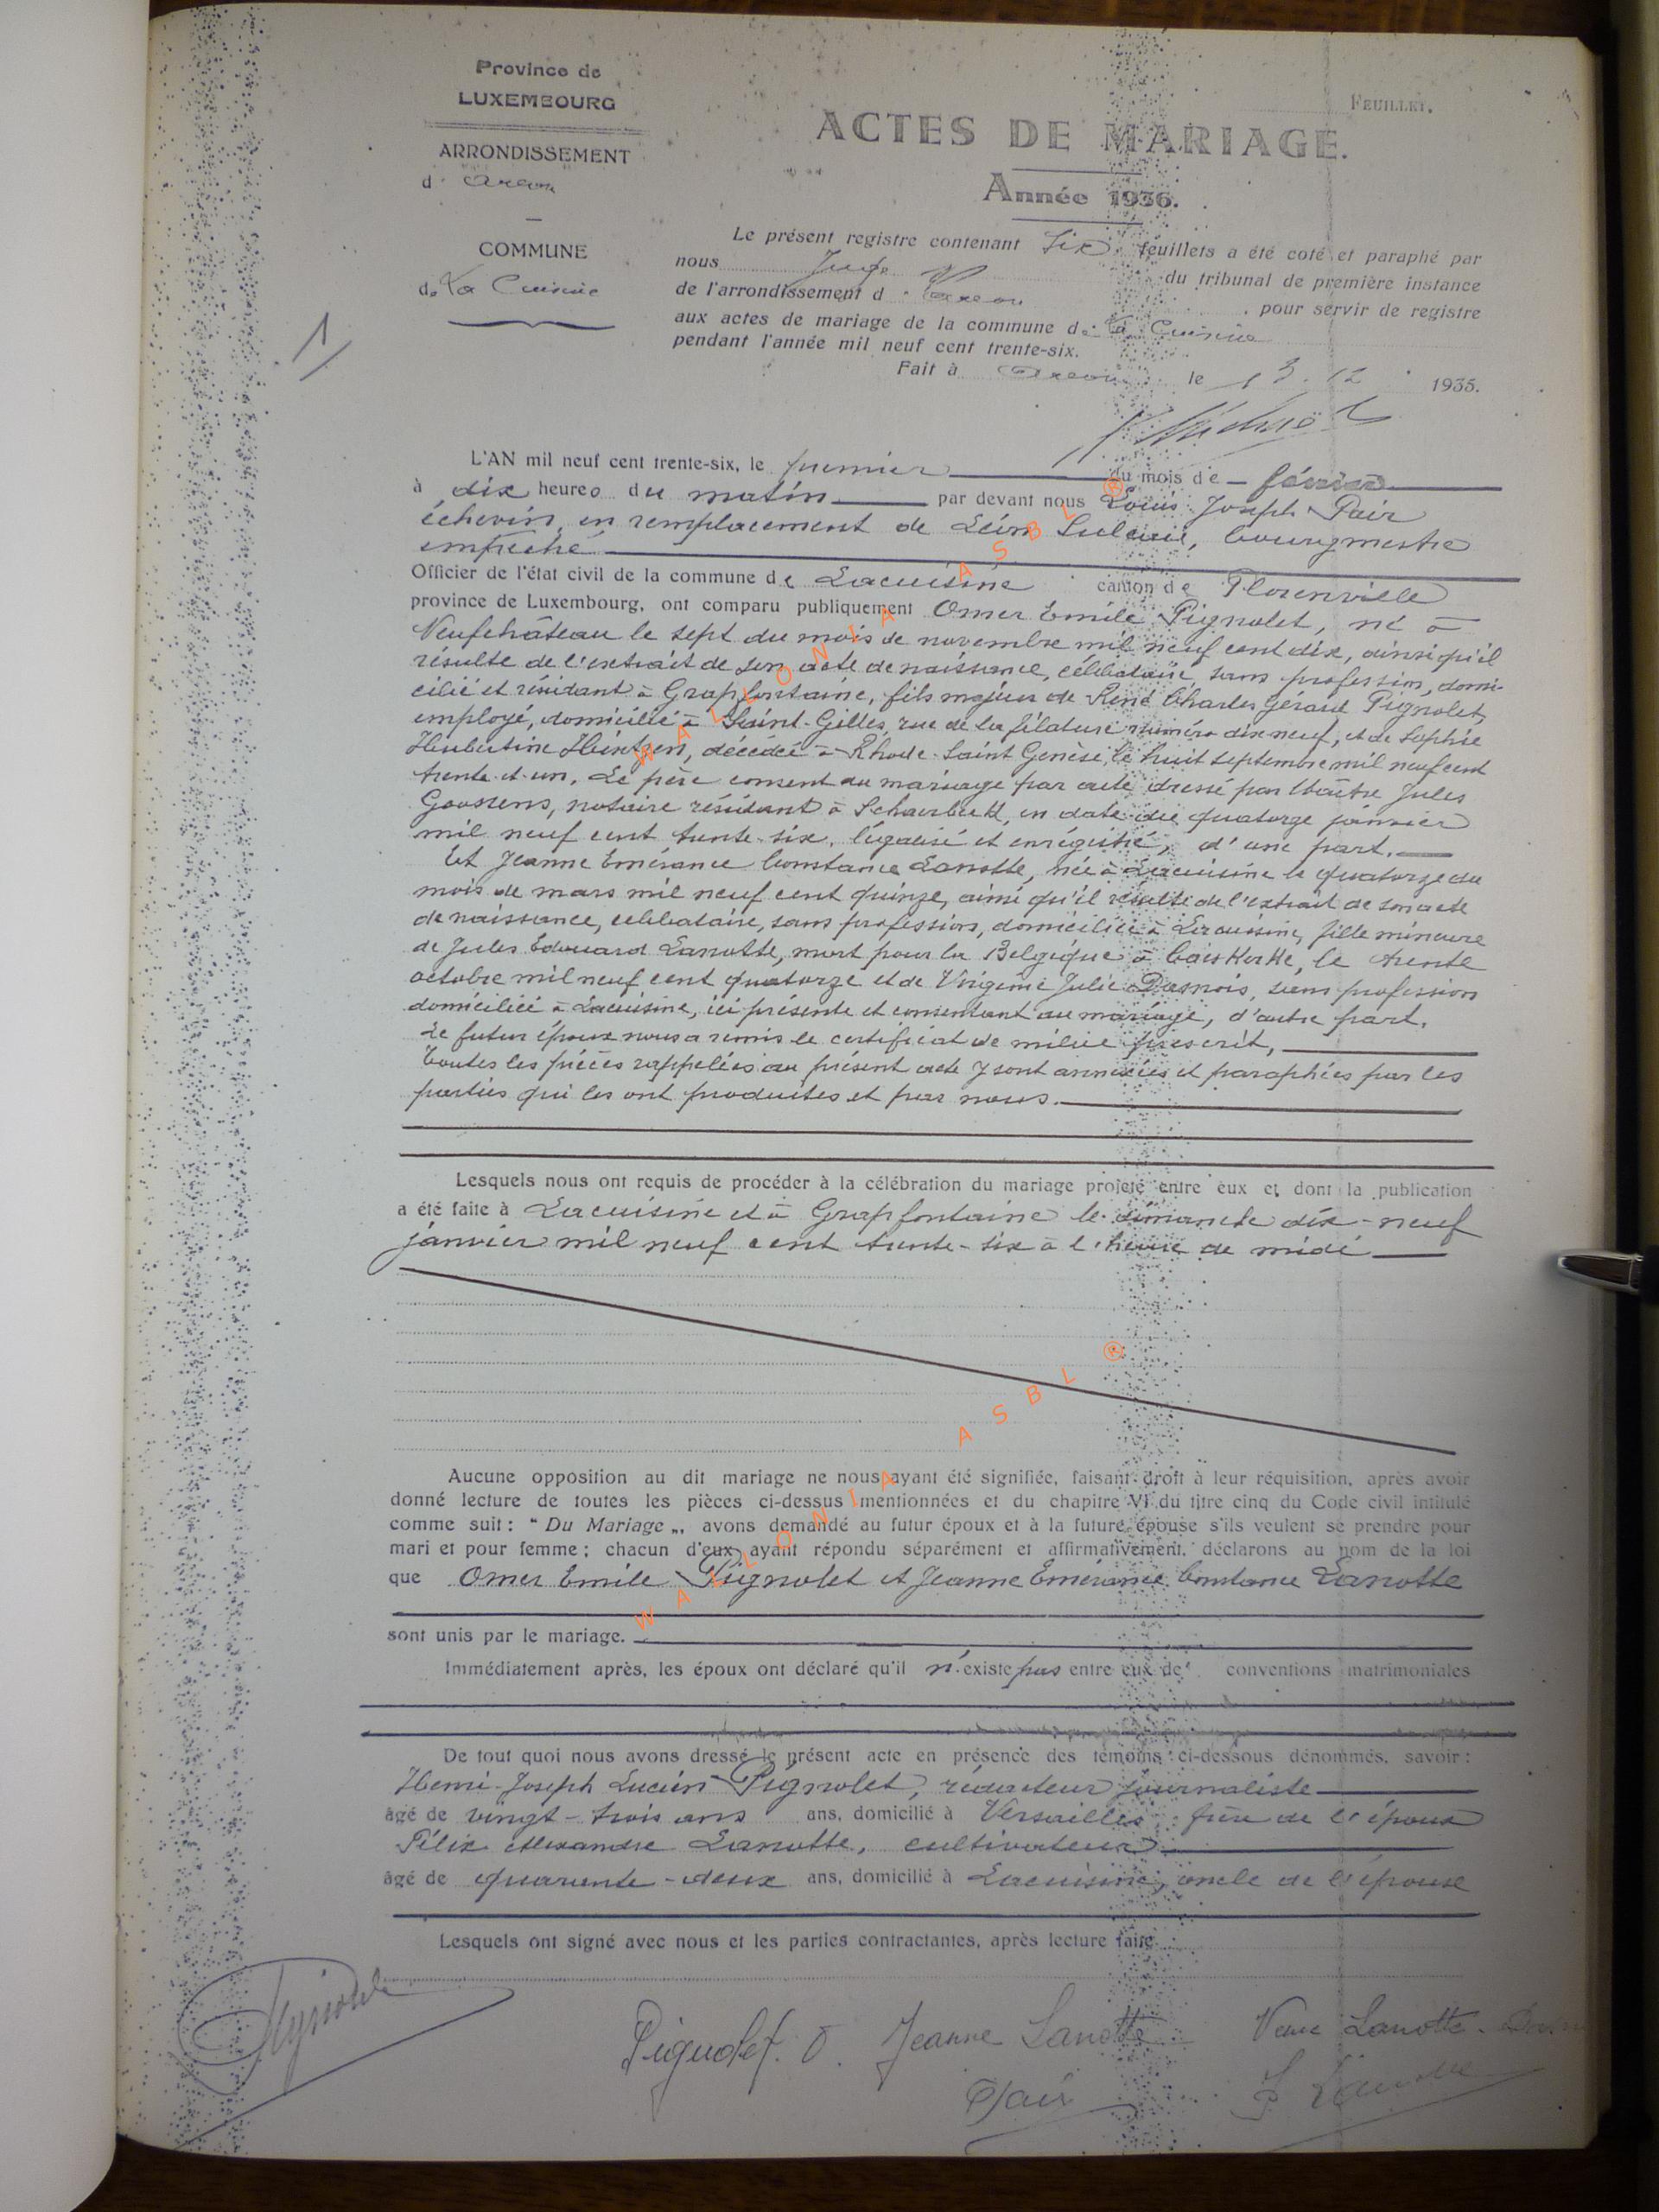 Province de
LUXEMBOURG
ARRONDISSEMENT
d'Arlon
COMMUNE
de La Cuisine
1
FEUILLET.
ACTES DE MARIAGE.
Année 1936.
Le présent registre contenant six feuillets a été coté et paraphé par
nous Juge du tribunal de première instance
de l'arrondissement d'Arlon pour servir de registre
aux actes de mariage de la commune de La Cuisine
pendant l'année mil neuf cent trente-six.
Fait à Arlon le 13.12 1935.
L'AN mil neuf cent trente-six, le premier du mois de février
à dix heures du matin par devant nous Louis Joseph Pair
échevin, en remplacement de Léon bourgmestre
empêché
Officier de l'état civil de la commune de Lacuisine canton de Florenville
province de Luxembourg, ont comparu publiquement Omer Emile Pignolet, né à
Neufchâteau le sept du mois de novembre mil neuf cent dix, ainsi qu'il
résulte de l'extrait de son acte de naissance, célibataire, sans profession, domi-
cilié et résidant à Grapfontaine, fils majeur de René Charles Gérard Pignolet,
employé, domicilié à Saint-Gilles, rue de la filature numéro dix neuf, et de Sophie
Hubertine Heintzen, décédée à Rhode-Saint Genèse, le huit septembre mil neuf cent
trente-et-un. Le père consent au mariage par acte dressé par Maître Jules
Goossens, notaire résidant à Schaerbeek, en date du quatorze janvier
mil neuf cent trente-six, légalisé et enrégistré, d'une part.
Et Jeanne Emérance Constance Lanotte, née à Lacuisine le quatorze du
mois de mars mil neuf cent quinze, ainsi qu'il résulte de l'extrait de son acte
de naissance, célibataire, sans profession, domiciliée à Lacuisine, fille mineure
de Jules Edouard Lanotte, mort pour la Belgique à Caeskerke, le trente
octobre mil neuf cent quatorze et de Virginie Julie Dasnois, sans profession
domiciliée à Lacuisine, ici présente et consentant au mariage, d'autre part.
Le futur époux nous a remis le certificat de milice prescrit,
Toutes les pièces rappelées au présent acte y sont annexées et paraphées par les
parties qui les ont produites et par nous.
Lesquels nous ont requis de procéder à la célébration du mariage projeté entre eux et dont la publication
a été faite à Lacuisine et à Grapfontaine le dimanche dix-neuf
janvier mil neuf cent trente-six à l'heure de midi
Aucune opposition au dit mariage ne nous ayant été signifiée, faisant droit à leur réquisition, après avoir
donné lecture de toutes les pièces ci-dessus mentionnées et du chapitre VI du titre cinq du Code civil intitulé
comme suit : " Du Mariage ", avons demandé au futur époux et à la future épouse s'ils veulent se prendre pour
mari et pour femme ; chacun d'eux ayant répondu séparément et affirmativement, déclarons au nom de la loi
que Omer Emile Pignolet et Jeanne Emérance Constance Lanotte
sont unis par le mariage.
Immédiatement après, les époux ont déclaré qu'il n'existe pas entre eux de conventions matrimoniales
De tout quoi nous avons dressé le présent acte en présence des témoins ci-dessous dénommés, savoir :
Henri-Joseph Lucien Pignolet, rédacteur journaliste
âgé de vingt-trois ans ans, domicilié à Versailles, frère de l'époux
Félix Alexandre Lanotte, cultivateur
âgé de quarante-deux ans, domicilié à Lacuisine, oncle de l'épouse
Lesquels ont signé avec nous et les parties contractantes, après lecture faite
Pignolet
Pignolet. O. Jeanne Lanotte Veuve Lanotte.
Pair F Lanotte
WALLONIA ASBL ®
WALLONIA ASBL ®